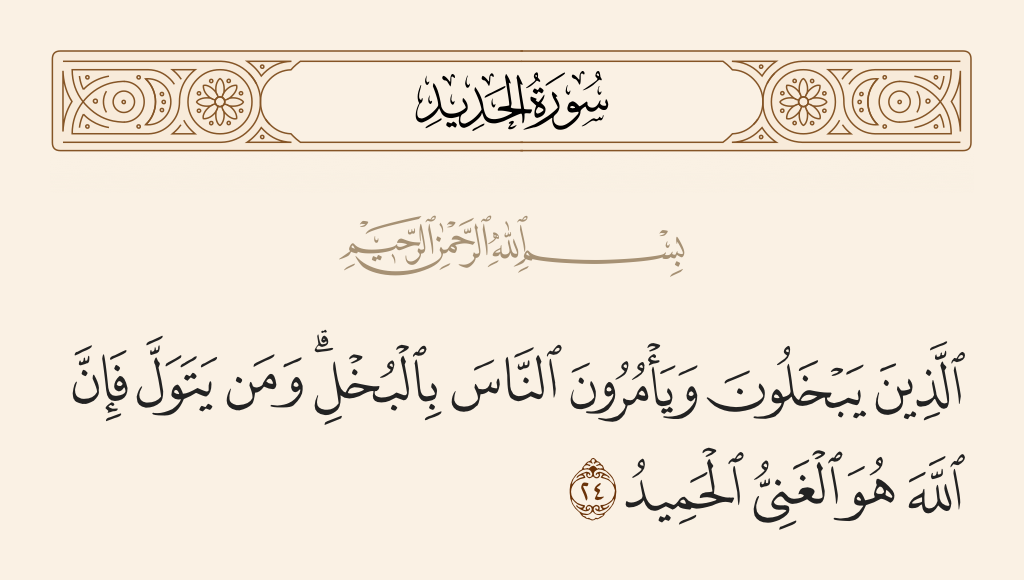 سُورَةُ الحَدِيدِ
بِسْمِ ٱللَّهِ ٱلرَّحْمَٰنِ ٱلرَّحِيمِ
ٱلَّذِينَ يَبْخَلُونَ وَيَأْمُرُونَ ٱلنَّاسَ بِٱلْبُخْلِ ۗ وَمَن يَتَوَلَّ فَإِنَّ
ٱللَّهَ هُوَ ٱلْغَنِىُّ ٱلْحَمِيدُ ٢٤